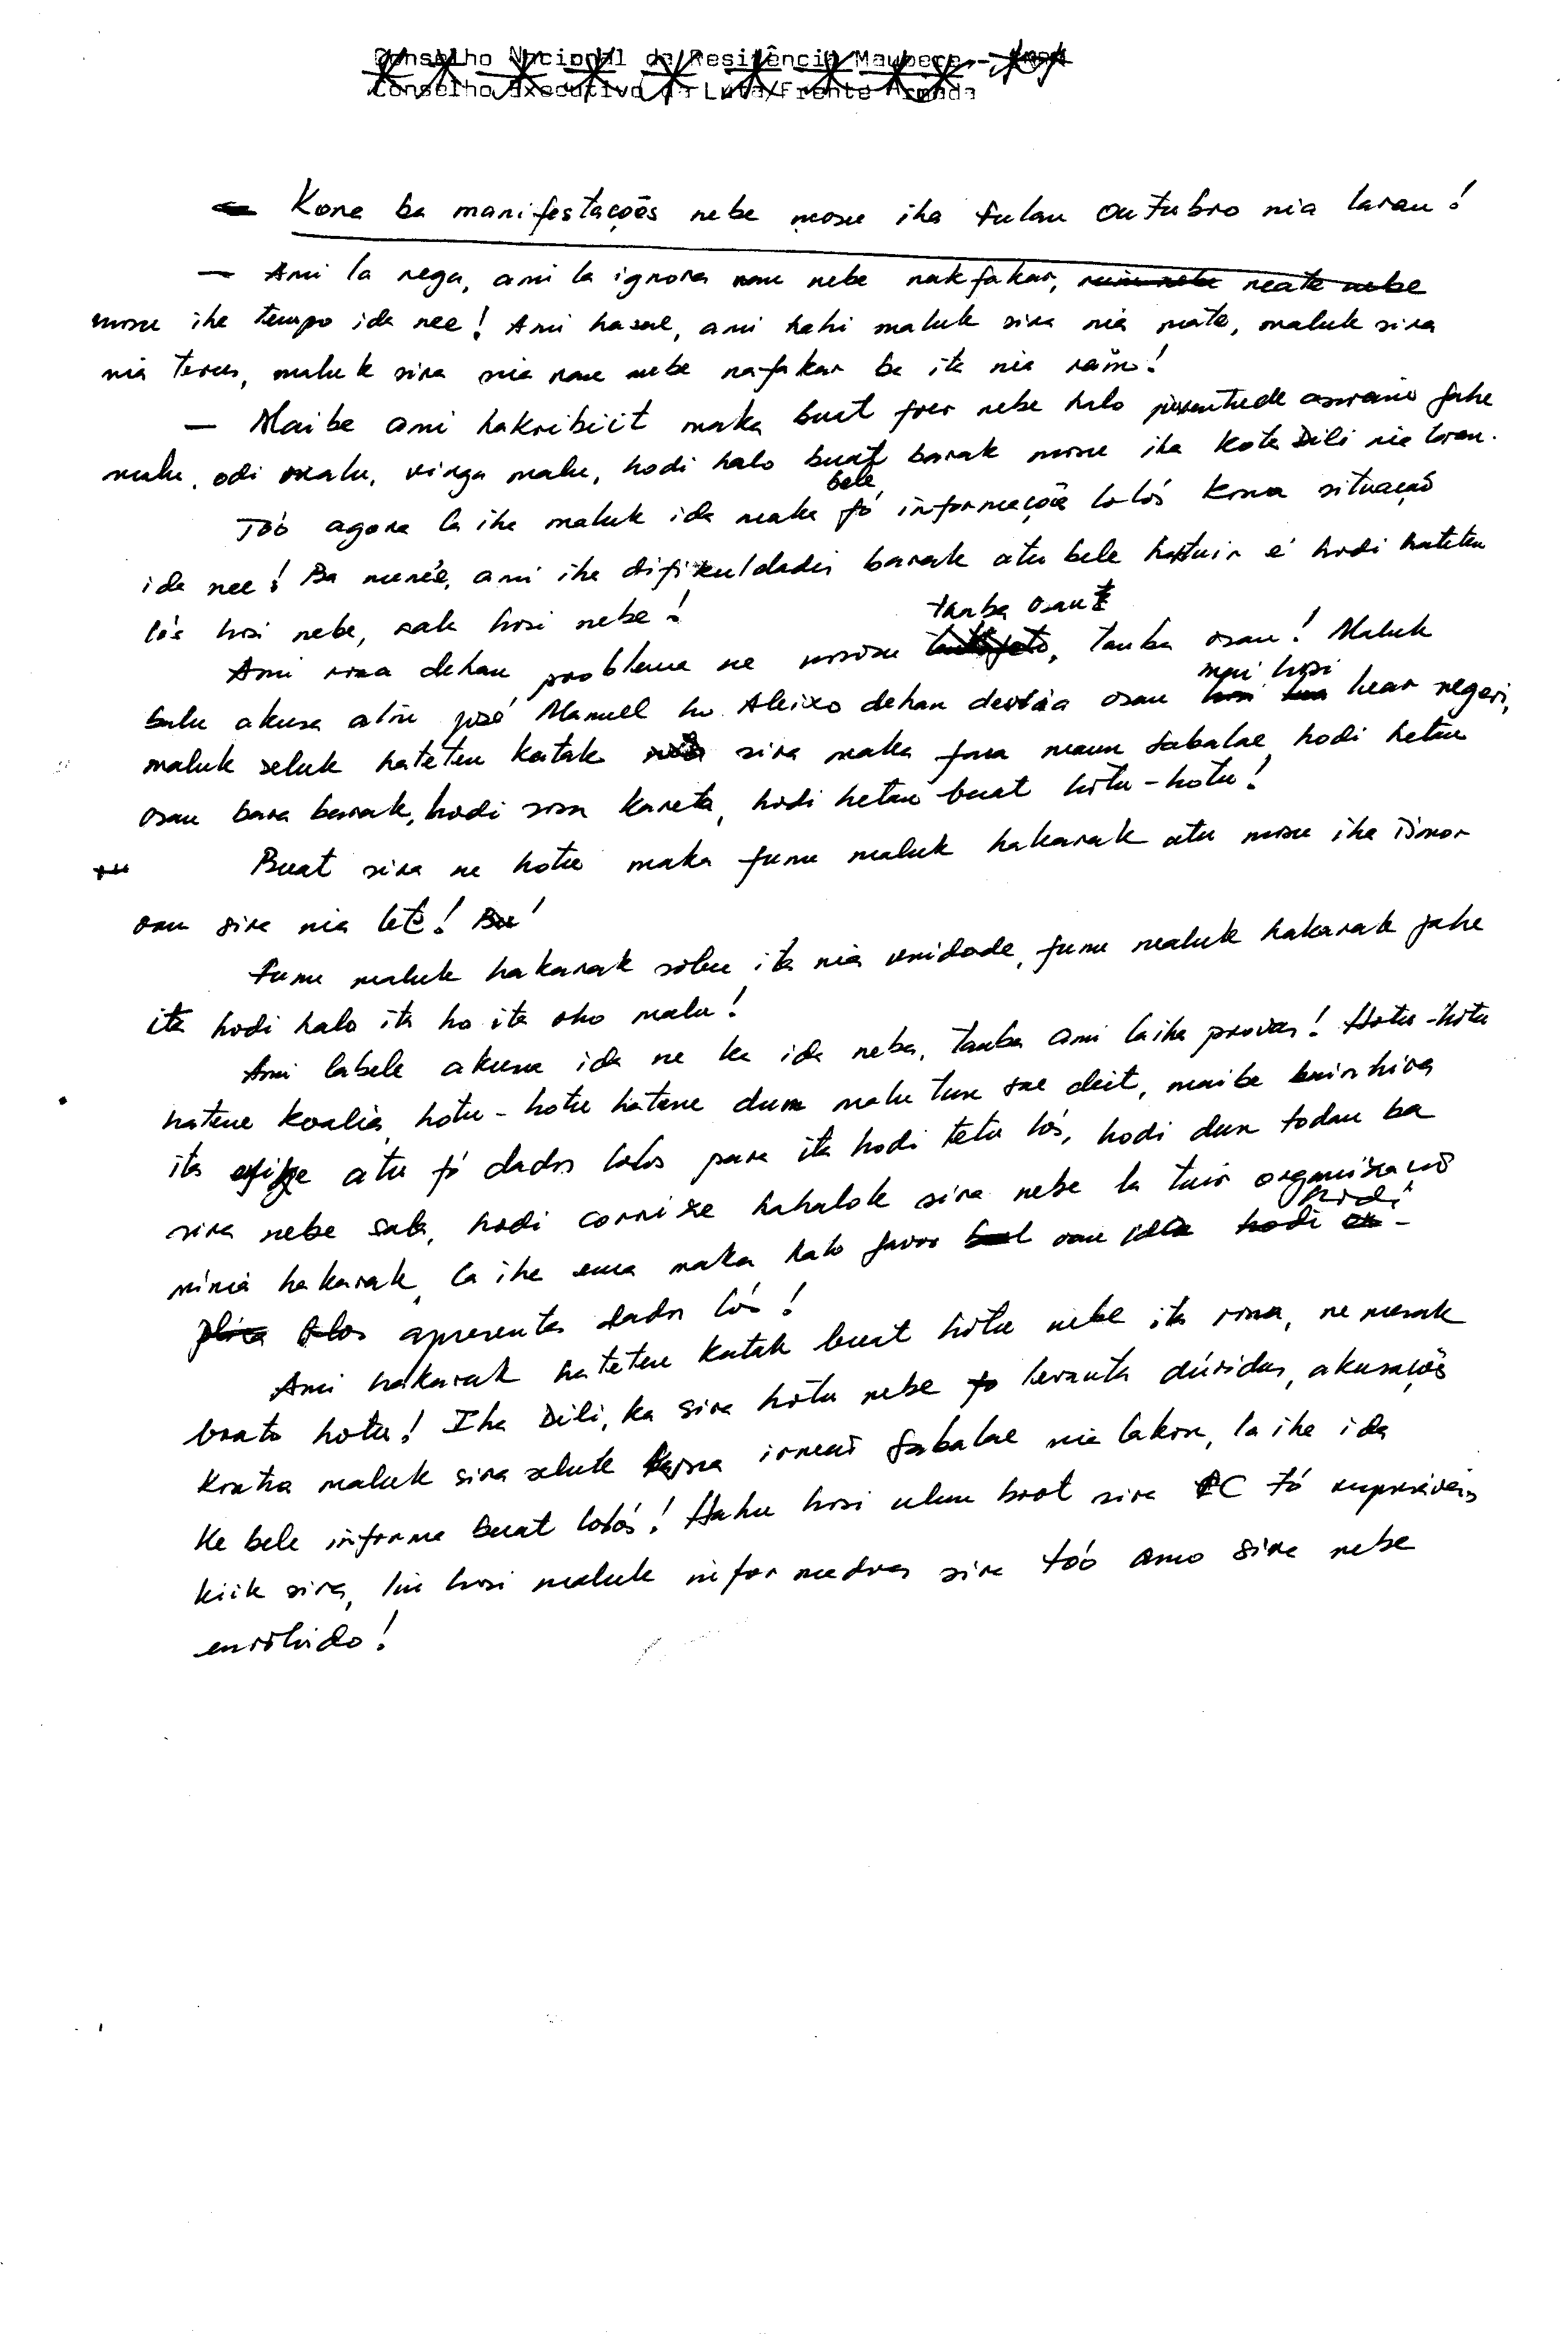 Conselho Nacional da Resistência Maubere - CNRM
Conselho Executivo da Luta/Frente Armada
Kona ba manifestações nebe mosu iha fulan Outubro nia laran!
— Ami la nega, ami la ignora ran nebe nakfakar, mate nebe
mosu iha tempo ida nee! Ami hasae, ami hahi maluk sira nia mate, maluk sira
nia terus, maluk sira nia ran nebe nafakar ba ita nia rain!
— Maibe ami hakribiit maka buat foer nebe halo juventude asuwain fahe
malu, odi malu, vinga malu, hodi halo buat barak mosu iha kota Dili nia laran.
Tóó agora la iha maluk ida maka bele fó informações lolós kona situação
ida nee! Ba nune'e, ami iha difikuldades barak atu bele hatuir é hodi hateten
lós hosi nebe, sala hosi nebe!
Ami rona dehan problema ne mosu tanba osan, tanba osan! Maluk
balu akusa alin José Manuel ho Aleixo dehan osan mai hosi luar negeri,
maluk seluk hateten katak sira maka maun Sabalae, hodi hetan
osan bara barak, hodi sosa kareta, hodi hetan buat hotu-hotu!
Buat sira ne hotu maka funu maluk hakarak atu mosu iha Timor
oan sira nia let!
Funu maluk hakarak sobu ita nia unidade, funu maluk hakarak fahe
ita hodi halo ita ho ita oho malu!
Ami labele akusa ida ne ka ida neba, tanba ami laiha provas! Hotu-hotu
hatene koalia, hotu-hotu hatene dum malu tun sae deit, maibe bainhira
ita exige atu fó dados lolos para ita hodi tetu lós, hodi dun todan ba
sira nebe sala, hodi corrize hahalok sira nebe la tuir organização
ninia hakarak, la iha ema maka halo favor oan ida hodi
apresenta dados lós!
Ami hakarak hateten katak buat hotu nebe ita rona, ne mesak
boato hotu! Iha Dili, ka sira hotu nebe levanta dúvidas, akusações
kontra maluk sira seluk kona irmão Sabalae nia lakon, la iha ida
ke bele informa buat lolós! Hahu hosi ulun boot sira CC tó responsáveis
kiik sira, liu hosi maluk informadores sira tóó amo sira nebe
envolvido!